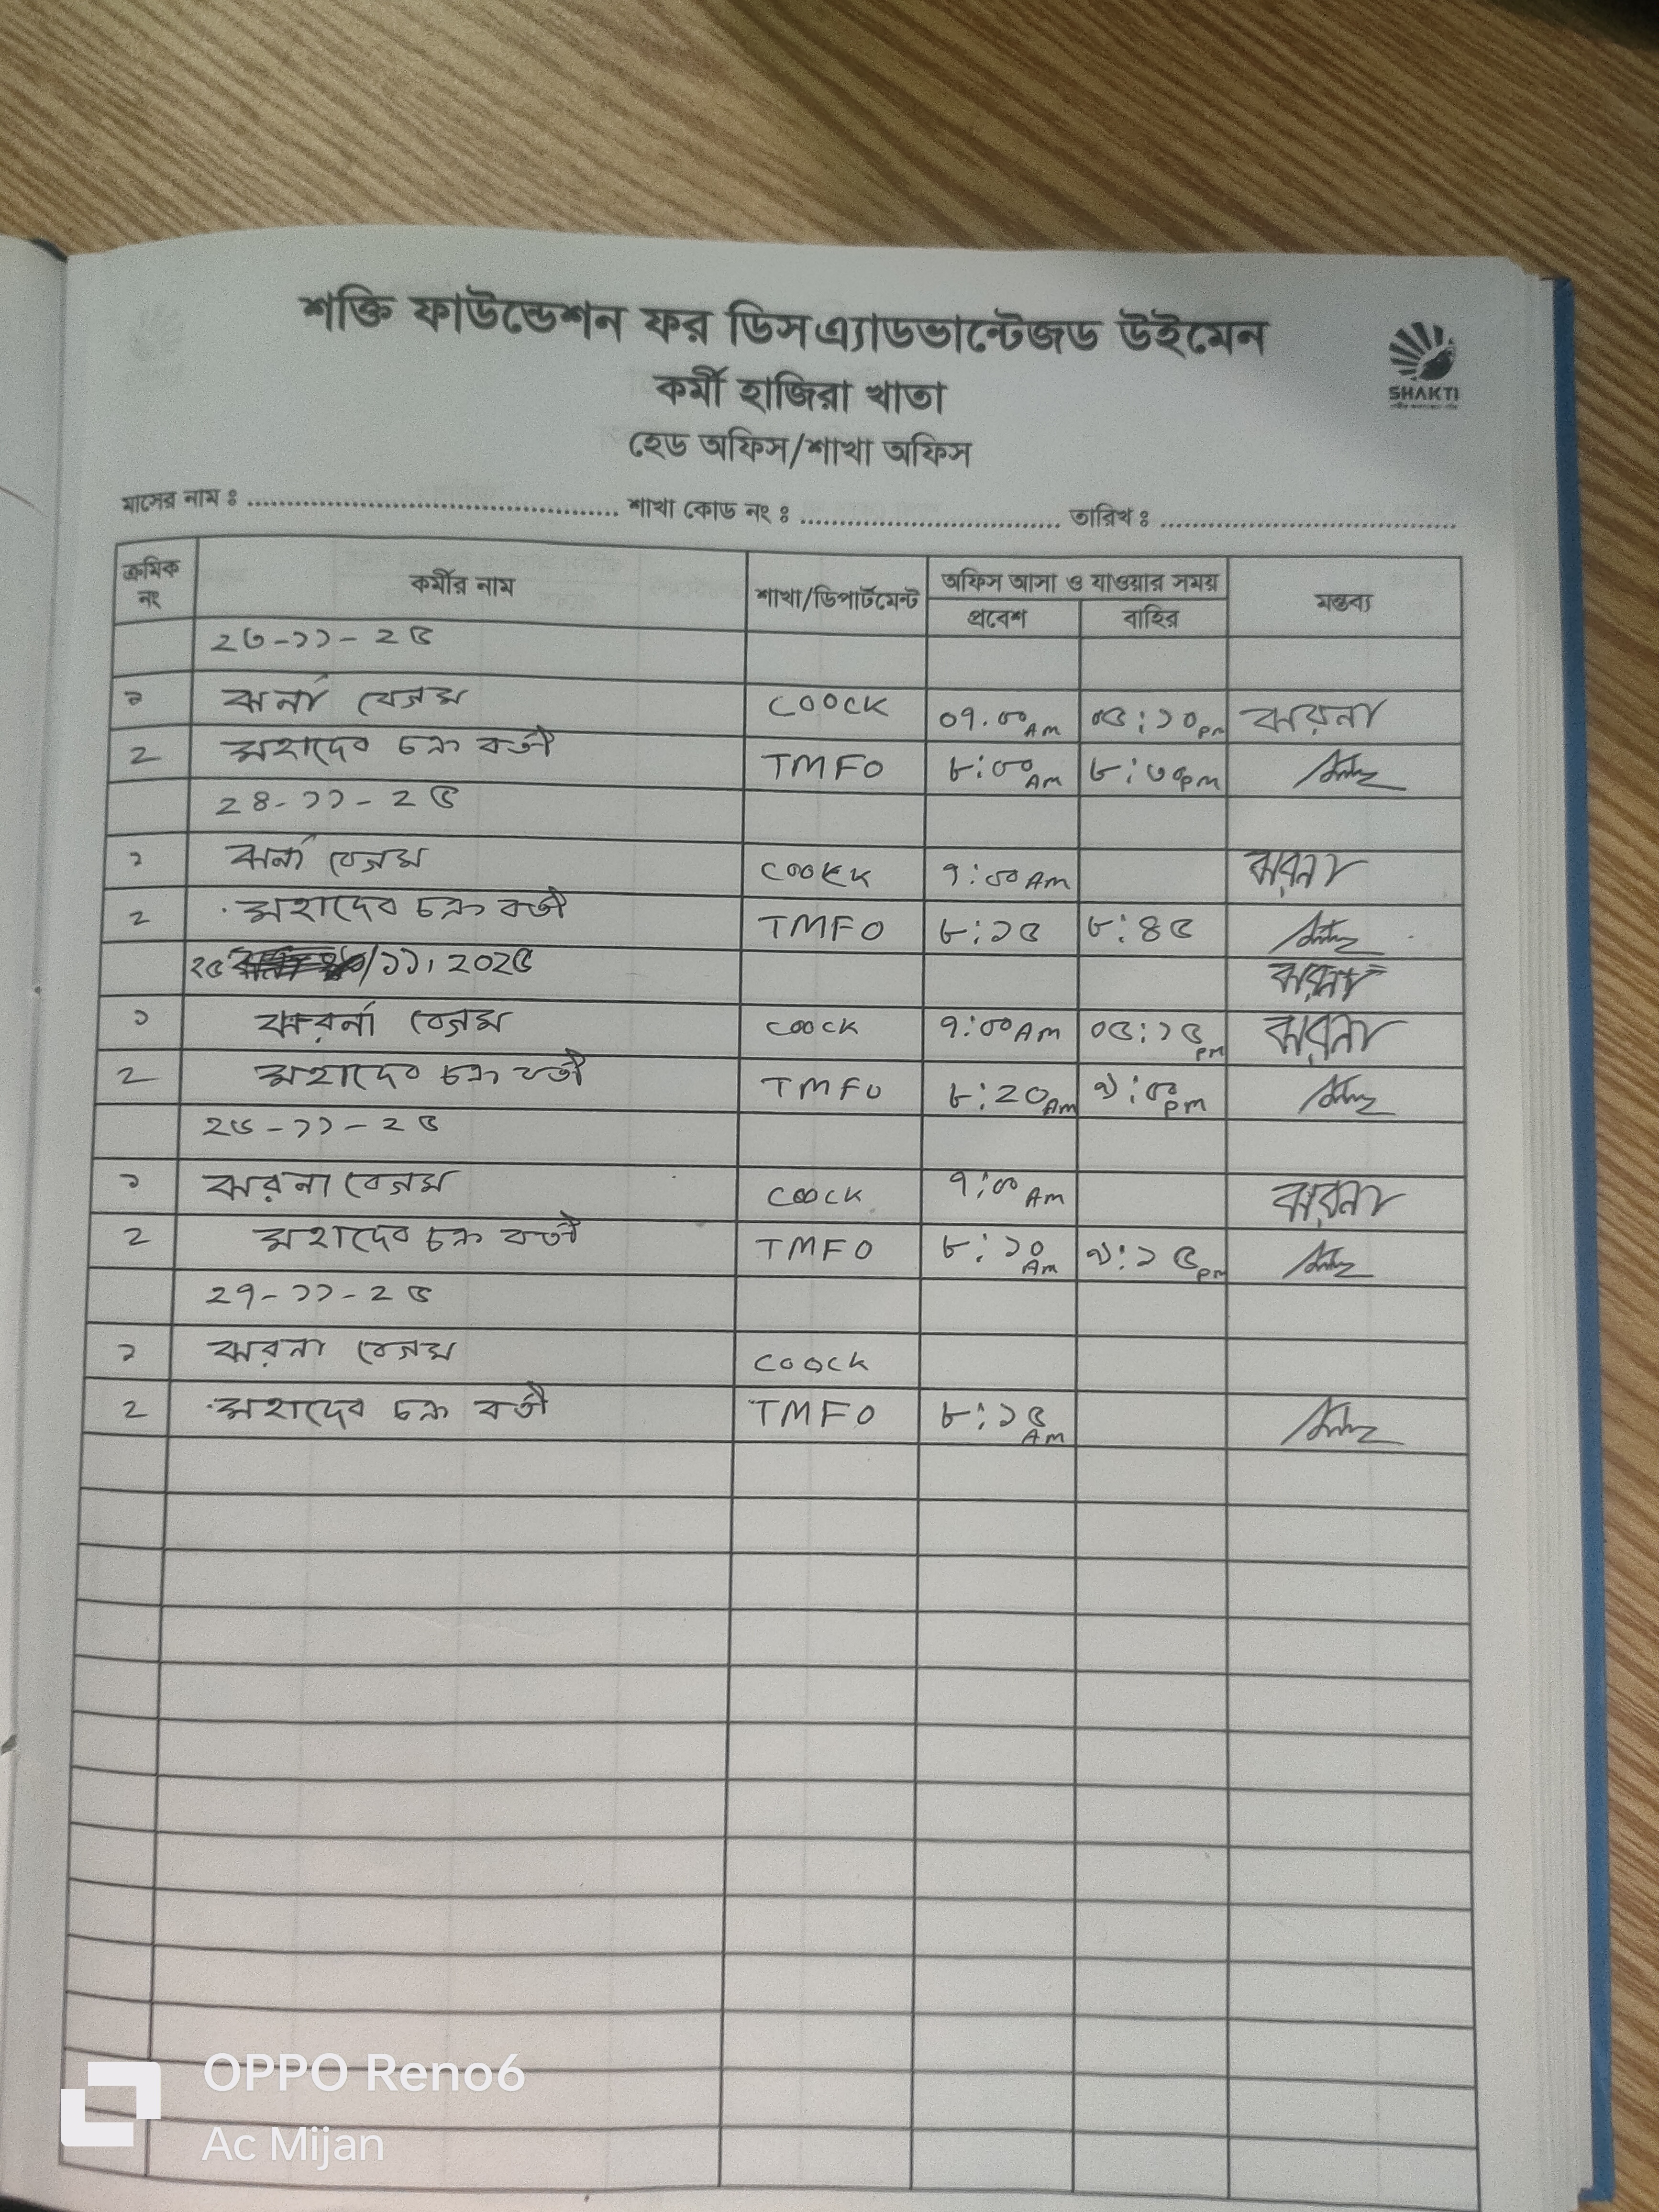 শক্তি ফাউন্ডেশন ফর ডিসএ্যাডভান্টেজড উইমেন
SHAKTI
কর্মী হাজিরা খাতা
হেড অফিস/শাখা অফিস
মাসের নাম ঃ ........ শাখা কোড নং ঃ ........ তারিখ ঃ ........
ক্রমিক নং কর্মীর নাম শাখা/ডিপার্টমেন্ট অফিস আসা ও যাওয়ার সময় মন্তব্য
প্রবেশ বাহির
২৩-১১-২৫
১ ঝর্না বেগম COOCK ০৭.০০ AM ০৫:১০ pm ঝরনা
২ মহাদেব চক্র বর্তী TMFO ৮:০০ AM ৮:৩০ pm
২৪-১১-২৫
১ ঝর্না বেগম COOKK ৭:০০ AM ঝরনা
২ মহাদেব চক্র বর্তী TMFO ৮:১৫ ৮:৪৫
২৫ /১১, ২০২৫ ঝরনা
১ ঝরর্না বেগম COOCK ৭:০০ AM ০৫:১৫ pm ঝরনা
২ মহাদেব চক্র বর্তী TMFO ৮:২০ AM ৯:৫০ pm
২৬-১১-২৫
১ ঝরনা বেগম COOCK ৭:০০ AM ঝরনা
২ মহাদেব চক্র বর্তী TMFO ৮:১০ AM ৯:১৫ pm
২৭-১১-২৫
১ ঝরনা বেগম COOCK
২ মহাদেব চক্র বর্তী TMFO ৮:১৫ AM
OPPO Reno6
Ac Mijan